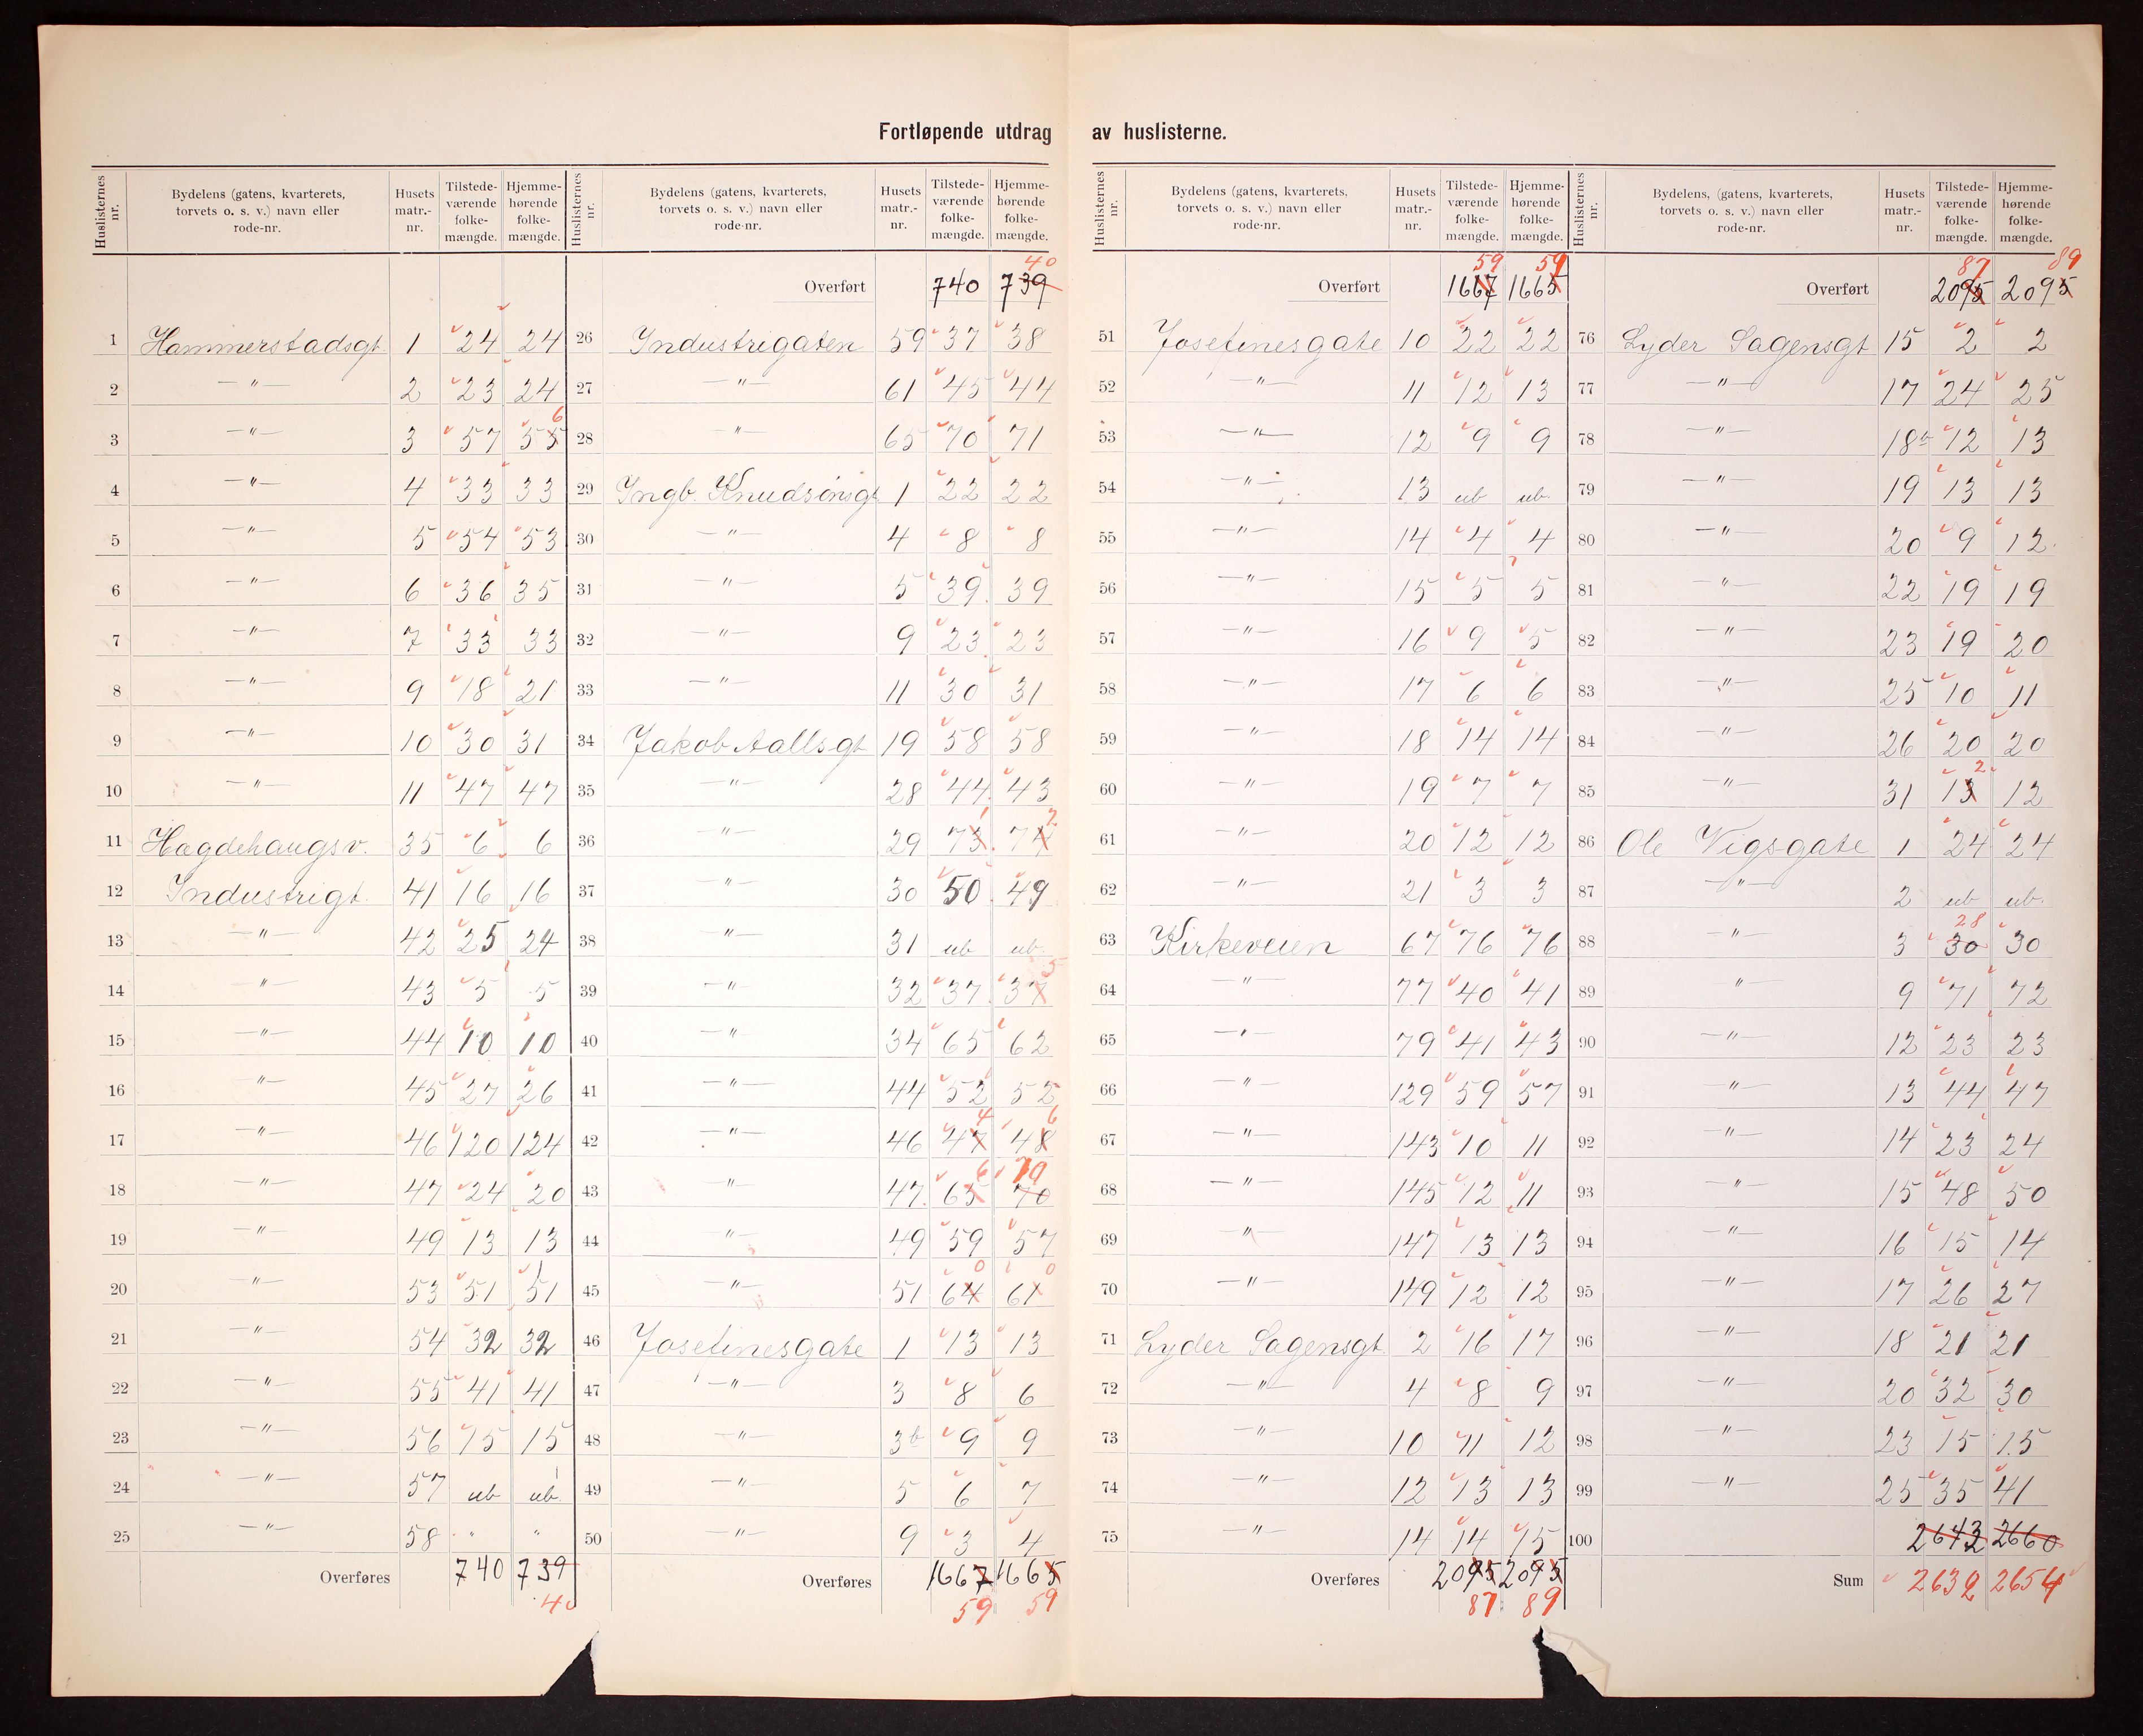 Fortløpende utdrag av huslisterne.
Huslisternes nr. | Bydelens (gatens, kvarterets, torvets o. s. v.) navn eller rode-nr. | Husets matr.-nr. | Tilstedeværende folkemængde. | Hjemmehørende folkemængde.
1 Hammerstadsgt. 1 24 24
2 —"— 2 23 24
3 —"— 3 57 55 6
4 —"— 4 33 33
5 —"— 5 54 53
6 —"— 6 36 35
7 —"— 7 33 33
8 —"— 9 18 21
9 —"— 10 30 31
10 —"— 11 47 47
11 Hægdehaugsv. 35 6 6
12 Industrigt. 41 16 16
13 —"— 42 25 24
14 —"— 43 5 5
15 —"— 44 10 10
16 —"— 45 27 26
17 —"— 46 120 124
18 —"— 47 24 20
19 —"— 49 13 13
20 —"— 53 51 51
21 —"— 54 32 32
22 —"— 55 41 41
23 —"— 56 15 15
24 —"— 57 ub ub.
25 —"— 58 " "
Overføres 740 739
40
Huslisternes nr. | Bydelens (gatens, kvarterets, torvets o. s. v.) navn eller rode-nr. | Husets matr.-nr. | Tilstedeværende folkemængde. | Hjemmehørende folkemængde.
40
Overført 740 739
26 Industrigaten 59 37 38
27 —"— 61 45 44
28 —"— 65 70 71
29 Ingb. Knudsønsgt 1 22 22
30 —"— 4 8 8
31 —"— 5 39 39
32 —"— 9 23 23
33 —"— 11 30 31
34 Jakob Aallsgt 19 58 58
35 —"— 28 44 43
36 —"— 29 73 1 74 2
37 —"— 30 50 49
38 —"— 31 ub ub
39 —"— 32 37 37 5
40 —"— 34 65 62
41 —"— 44 52 52
42 —"— 46 47 4 48 6
43 —"— 47 65 6 70 70
44 —"— 49 59 57
45 —"— 51 64 0 61 0
46 Josefinesgate 1 13 13
47 —"— 3 8 6
48 —"— 3b 9 9
49 —"— 5 6 7
50 —"— 9 3 4
Overføres 1667 1665
59 59
Huslisternes nr. | Bydelens (gatens, kvarterets, torvets o. s. v.) navn eller rode-nr. | Husets matr.-nr. | Tilstedeværende folkemængde. | Hjemmehørende folkemængde.
59 59
Overført 1667 1665
51 Josefinesgate 10 22 22
52 —"— 11 12 13
53 —"— 12 9 9
54 —"— 13 ub ub.
55 —"— 14 4 4
56 —"— 15 5 5
57 —"— 16 9 5
58 —"— 17 6 6
59 —"— 18 14 14
60 —"— 19 7 7
61 —"— 20 12 12
62 —"— 21 3 3
63 Kirkeveien 67 76 76
64 —"— 77 40 41
65 —"— 79 41 43
66 —"— 129 59 57
67 —"— 143 10 11
68 —"— 145 12 11
69 —"— 147 13 13
70 —"— 149 12 12
71 Lyder Sagensgt. 2 16 17
72 —"— 4 8 9
73 —"— 10 11 12
74 —"— 12 13 13
75 —"— 14 14 15
Overføres 2095 2095
87 89
Huslisternes nr. | Bydelens, (gatens, kvarterets, torvets o. s. v.) navn eller rode-nr. | Husets matr.-nr. | Tilstedeværende folkemængde. | Hjemmehørende folkemængde.
87 89
Overført 2095 2095
76 Lyder Sagensgt 15 2 2
77 —"— 17 24 25
78 —"— 18b 12 13
79 —"— 19 13 13
80 —"— 20 9 12
81 —"— 22 19 19
82 —"— 23 19 20
83 —"— 25 10 11
84 —"— 26 20 20
85 —"— 31 13 2 12
86 Ole Vigsgate 1 24 24
87 —"— 2 ub ub.
88 —"— 3 30 28 30
89 " 9 71 72
90 —"— 12 23 23
91 —"— 13 44 47
92 —"— 14 23 24
93 —"— 15 48 50
94 —"— 16 15 14
95 —"— 17 26 27
96 —"— 18 21 21
97 —"— 20 32 30
98 —"— 23 15 15
99 —"— 25 35 41
100 2643 2660
Sum 2632 2654